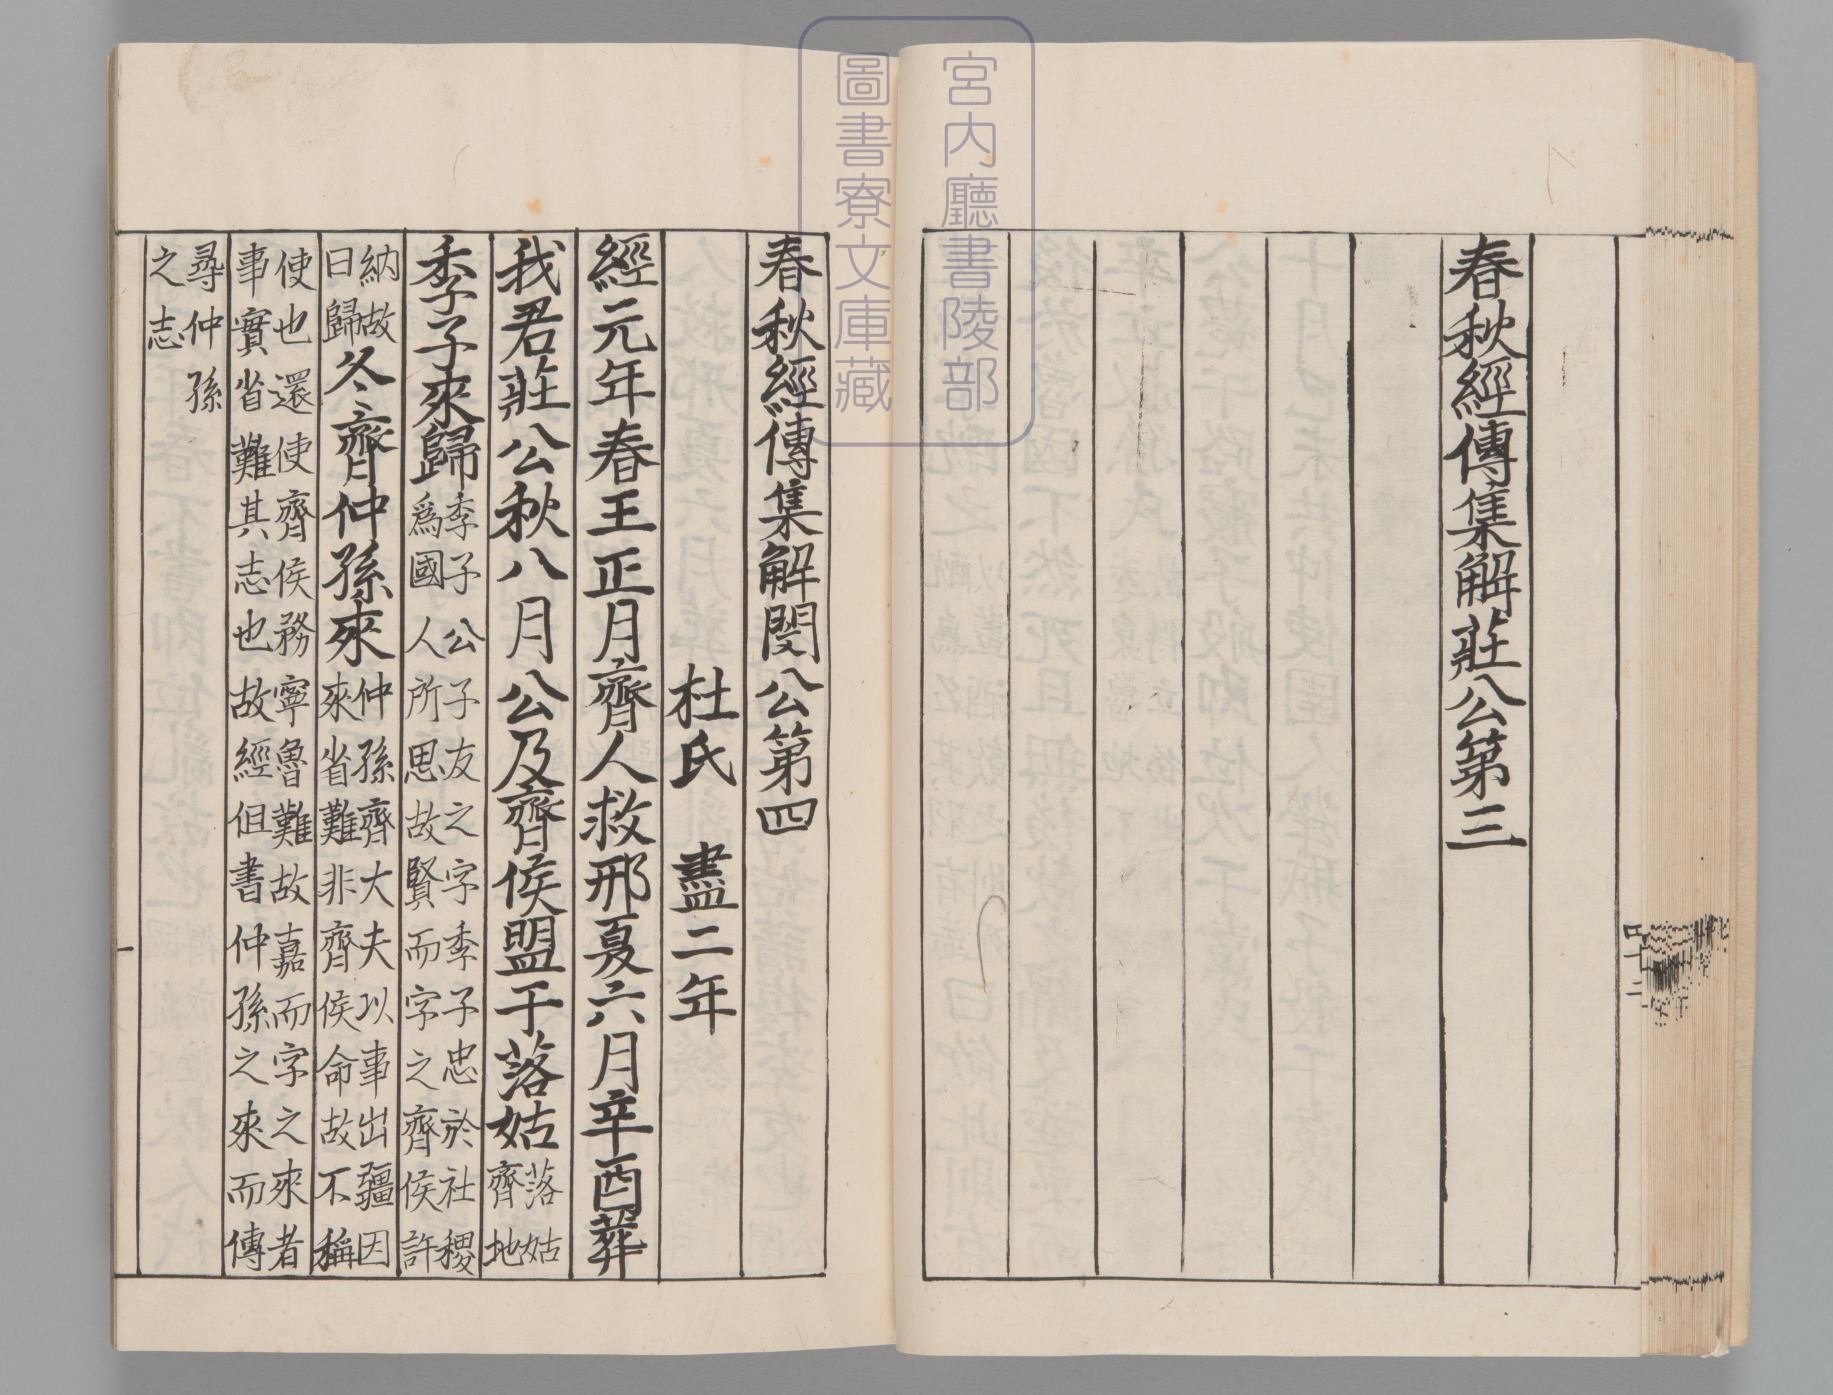 宮内廳書陵部
圖書寮文庫藏
春秋經傳集解莊公第三
四十二
春秋經傳集解閔公第四
杜氏　盡二年
經元年春王正月齊人救邢夏六月辛酉葬
我君莊公秋八月公及齊侯盟于落姑落姑齊地
季子來歸季子公子友之字季子忠於社稷爲國人所思故賢而字之齊侯許
納故曰歸冬齊仲孫來仲孫齊大夫以事出疆因來省難非齊侯命故不稱
使也還使齊侯務寧魯難故嘉而字之來者事實省難其志也故經但書仲孫之來而傳
尋仲孫之志
一